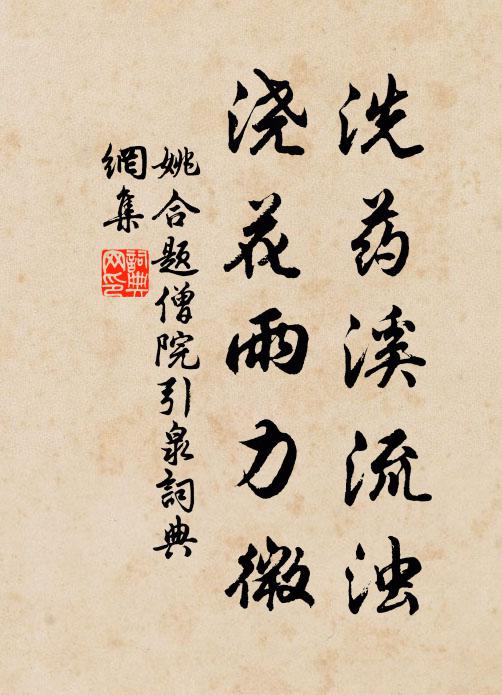 洗药溪流浊
浇花雨力微
姚合题僧院引泉詞典
網集
詞典
网印